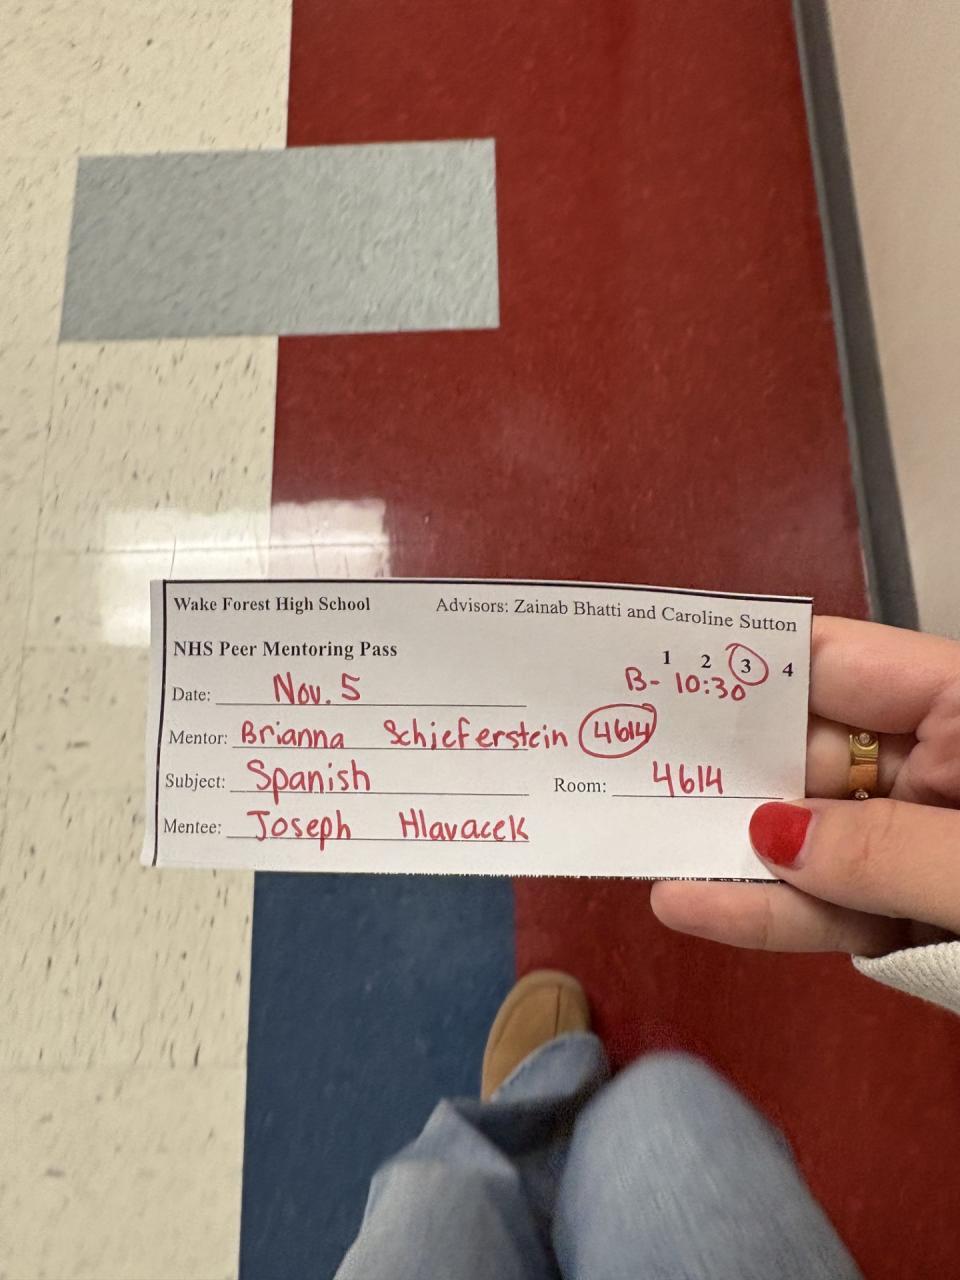 Wake Forest High School Advisors: Zainab Bhatti and Caroline Sutton
NHS Peer Mentoring Pass 1 2 3 4
Date: Nov. 5 B- 10:30
Mentor: Brianna Schieferstein 4614
Subject: Spanish Room: 4614
Mentee: Joseph Hlavacek